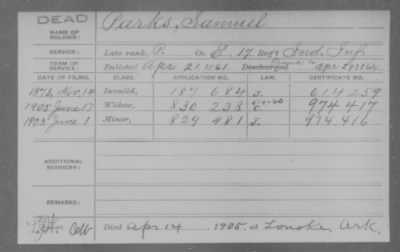 DEAD
NAME OF SOLDIER: Parks, Samuel
SERVICE: Late rank, P. Co. E. 17 Reg't Ind. Inf.
TERM OF SERVICE: Enlisted Apr 21, 1861 Discharged Apr 21 1864
DATE OF FILING. CLASS. APPLICATION NO. LAW. CERTIFICATE NO.
1873, Nov. 14 Invalid, 187 684 J. 614259
1905 June 17 Widow, 830 238 C 974.417
1905 June 1 Minor, 829 481 J. 974.416
ADDITIONAL SERVICES:
REMARKS:
Died Apr 14 1905, at Lonoke, Ark.